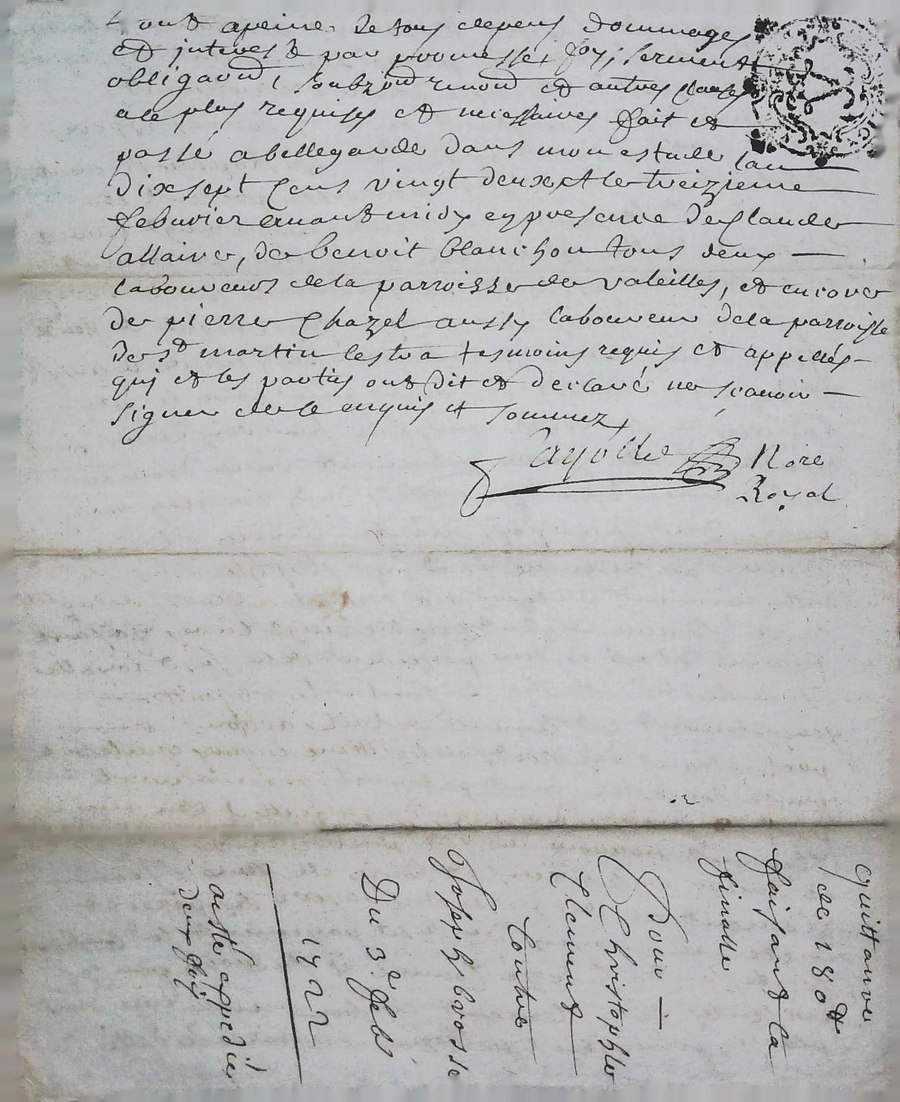 ont apeine de tous depens dommages
et interest par promesse, foy, serment
obligaond, soubzond renond et autres clauses
a le plus requises et necessaires fait et
passé a bellegarde dans mon estude lan
dix sept cens vingt deux et le treizieme
febuvrier avant midy en presence de claude
allaire, de benoit blanchon tous deux
laboureurs de la parroisse de valeilles, et encore
de pierre chazel aussy laboureur de la parroisse
de st martin lestra tesmoins requis et appellés
qui et les parties ont dit et declaré ne scavoir
signer de ce enquis et sommez
Nore
Royal
quittance
de 180 lt
faisant la
finalle
Pour
Christophle
Clement
Contre
Joseph brosse
Du 3e feb
1722